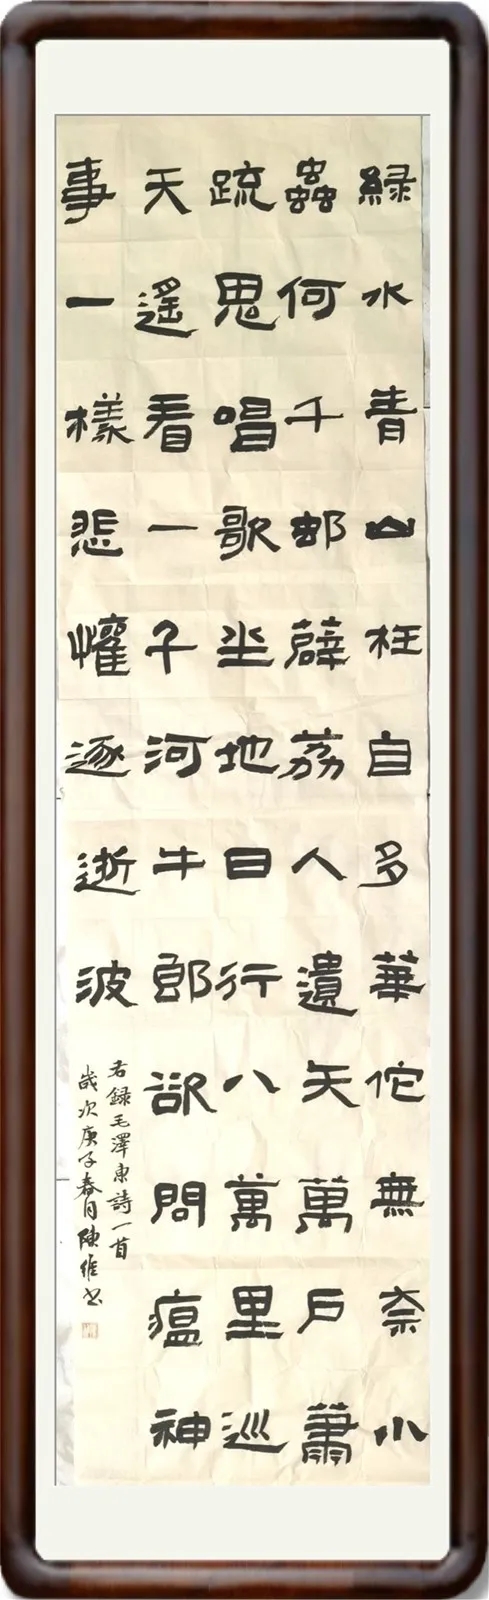 緑水青山枉自多華佗無奈小
蟲何千邨薜荔人遺矢萬戶蕭
疏思唱歌坐地日行八萬里巡
天遙看一千河牛郎欲問瘟神
事一樣悲懽逐逝波
右録毛澤東詩一首
歲次庚子春月陳維书